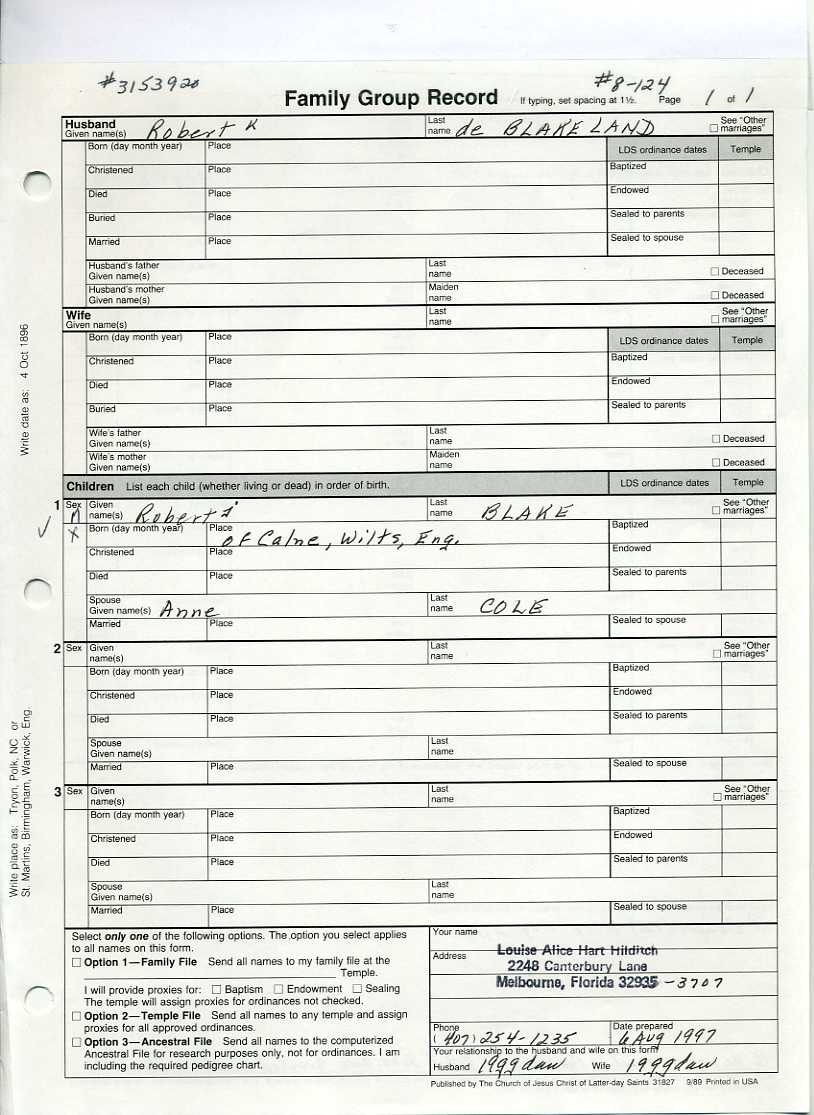 #3153920
#8-124
Family Group Record If typing, set spacing at 1½. Page 1 of 1
Husband
Given name(s) Robert K Last name de BLAKELAND See "Other marriages"
Born (day month year) Place LDS ordinance dates Temple
Christened Place Baptized
Died Place Endowed
Buried Place Sealed to parents
Married Place Sealed to spouse
Husband's father Given name(s) Last name Deceased
Husband's mother Given name(s) Maiden name Deceased
Wife
Given name(s) Last name See "Other marriages"
Born (day month year) Place LDS ordinance dates Temple
Christened Place Baptized
Died Place Endowed
Buried Place Sealed to parents
Wife's father Given name(s) Last name Deceased
Wife's mother Given name(s) Maiden name Deceased
Children List each child (whether living or dead) in order of birth. LDS ordinance dates Temple
1 Sex M Given name(s) Robert Last name BLAKE See "Other marriages"
X Born (day month year) Place of Calne, Wilts, Eng. Baptized
Christened Place Endowed
Died Place Sealed to parents
Spouse Given name(s) Anne Last name COLE
Married Place Sealed to spouse
2 Sex Given name(s) Last name See "Other marriages"
Born (day month year) Place Baptized
Christened Place Endowed
Died Place Sealed to parents
Spouse Given name(s) Last name
Married Place Sealed to spouse
3 Sex Given name(s) Last name See "Other marriages"
Born (day month year) Place Baptized
Christened Place Endowed
Died Place Sealed to parents
Spouse Given name(s) Last name
Married Place Sealed to spouse
Write date as: 4 Oct 1896
Write place as: Tryon, Polk, NC or
St. Martins, Birmingham, Warwick, Eng.
Select only one of the following options. The option you select applies
to all names on this form.
Option 1—Family File Send all names to my family file at the
Temple.
I will provide proxies for: Baptism Endowment Sealing
The temple will assign proxies for ordinances not checked.
Option 2—Temple File Send all names to any temple and assign
proxies for all approved ordinances.
Option 3—Ancestral File Send all names to the computerized
Ancestral File for research purposes only, not for ordinances. I am
including the required pedigree chart.
Your name
Louise Alice Hart Hilditch
Address
2248 Canterbury Lane
Melbourne, Florida 32935 -3707
Phone Date prepared
(407) 254-1235 6 Aug 1997
Your relationship to the husband and wife on this form
Husband 19ggdau Wife 19ggdau
Published by The Church of Jesus Christ of Latter-day Saints 31827 9/89 Printed in USA